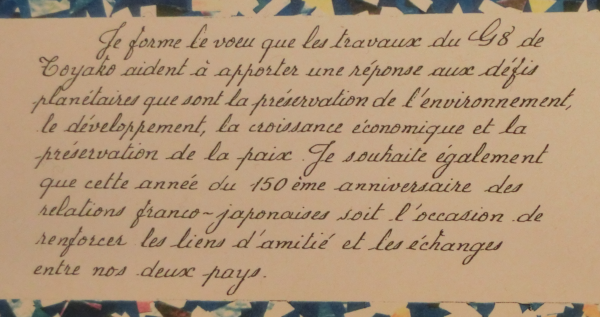 Je forme le voeu que les travaux du G8 de
Toyako aident à apporter une réponse aux défis
planétaires que sont la préservation de l'environnement,
le développement, la croissance économique et la
préservation de la paix. Je souhaite également
que cette année du 150ème anniversaire des
relations franco-japonaises soit l'occasion de
renforcer les liens d'amitié et les échanges
entre nos deux pays.